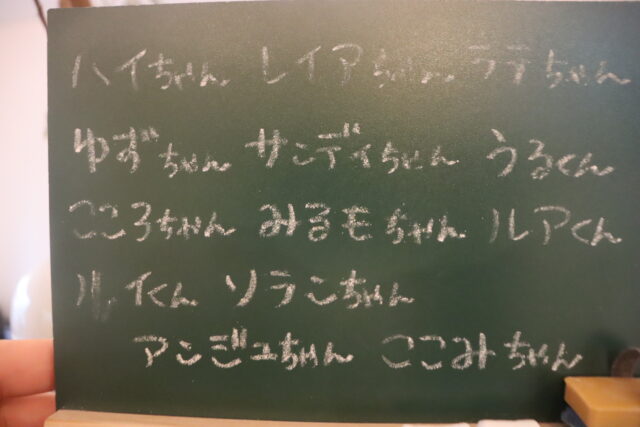 ハイちゃん レイアちゃん ラテちゃん
ゆずちゃん サンディちゃん うるくん
こころちゃん みるモちゃん ルアくん
ルイくん ソランちゃん
アンジュちゃん ここみちゃん